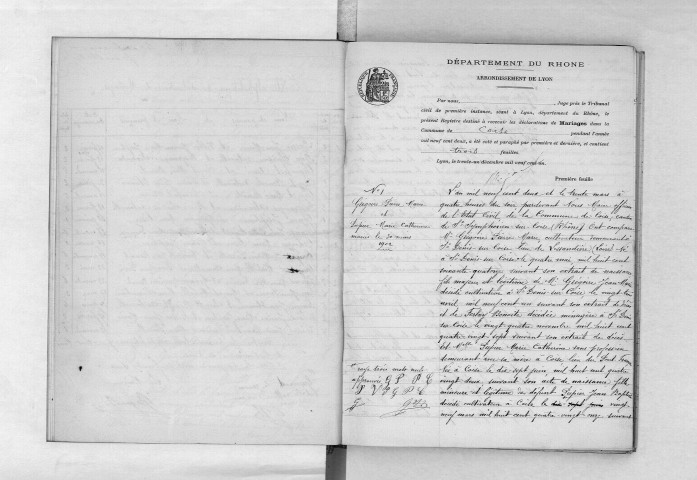 DÉPARTEMENT DU RHONE
ARRONDISSEMENT DE LYON
Par nous, Juge près le Tribunal
civil de première instance, séant à Lyon, département du Rhône, le
présent Registre destiné à recevoir les déclarations de Mariages dans la
Commune de Coise pendant l'année
mil neuf cent deux, a été coté et paraphé par première et dernière, et contient
trois feuilles
Lyon, le trente-un décembre mil neuf cent un.
Première feuille
N° 1
Grégoire Pierre Marie
et
Marie Catherine
mariés le 30 mars
1902
L'an mil neuf cent deux et le trente mars à
quatre heures du soir pardevant Nous Maire officier
de l'Etat Civil de la Commune de Coise, canton
de St Symphorien sur Coise (Rhône) Ont comparu
Mr Grégoire Pierre Marie, cultivateur demeurant à
St Denis sur Coise, lieu de (Loire) Né
à St Denis sur Coise le quatre mai mil huit cent
soixante quatorze suivant son extrait de naissance
fils majeur et légitime de Mr Grégoire Jean Marie
décédé cultivateur à St Denis sur Coise le vingt un
avril mil neuf cent un suivant son extrait de décès
et de Benoite décédée ménagère à St Denis
sur Coise le vingt quatre novembre mil huit cent
quatre vingt sept suivant son extrait de décès
Et Melle Marie Catherine sans profession
demeurant avec sa mère à Coise, lieu du
Née à Coise le dix sept juin mil huit cent quatre
vingt deux, suivant son acte de naissance, fille
mineure et légitime de défunt Jean Baptiste
décédé cultivateur à Coise le vingt
neuf mars mil huit cent quatre vingt onze suivant
rayé trois mots nuls
approuvés G P P C